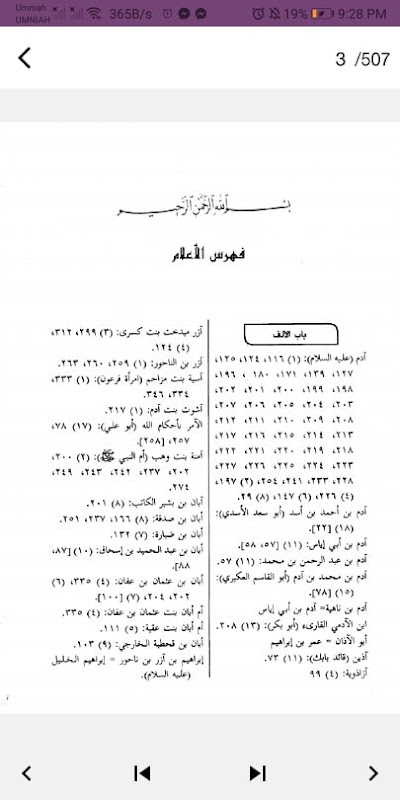 Umniah
UMNIAH
365B/s
19%
9:28 PM
3 /507
بسم الله الرحمن الرحيم
فهرس الأعلام
باب الألف
آدم (عليه السلام): (١) ١١٦، ١٢٤، ١٢٥،
١٢٧، ١٣٩، ١٧١، ١٨٠، ١٩٦،
١٩٨، ١٩٩، ٢٠٠، ٢٠١، ٢٠٢،
٢٠٣، ٢٠٤، ٢٠٥، ٢٠٦، ٢٠٧،
٢٠٨، ٢٠٩، ٢١٠، ٢١١، ٢١٢،
٢١٣، ٢١٤، ٢١٥، ٢١٦، ٢١٧،
٢١٨، ٢١٩، ٢٢٠، ٢٢١، ٢٢٢،
٢٢٣، ٢٢٤، ٢٢٥، ٢٢٦، ٢٢٧،
٢٢٨، ٢٣٣، ٢٤١، ٢٥٤، (٢) ١٩٧،
(٤) ٢٢٦، (٦) ١٤٧، (٨) ٢٩.
آدم بن أحمد بن أسد (أبو سعد الأسدي):
(١٨) [٢٢].
آدم بن أبي إياس: (١١) [٥٧، ٥٨].
آدم بن عبد الرحمن بن محمد: (١١) ٥٧.
آدم بن محمد بن آدم (أبو القاسم العكبري):
(١٥) [٧٨].
آدم بن ناهية= آدم بن أبي إياس
ابن الآدمي القارىء (أبو بكر): (١٣) ٢٠٨.
أبو الآذان = عمر بن إبراهيم
آذين (قائد بابك): (١١) ٧٣.
آزاذويه: (٤) ٩٩
آزر ميدخت بنت كسرى: (٣) ٢٩٩، ٣١٢،
(٤) ١٢٤.
آزر بن الناحور: (١) ٢٥٩، ٢٦٠، ٢٦٣.
آسية بنت مزاحم (امرأة فرعون): (١) ٣٣٣،
٣٣٤، ٣٤٦.
آشوت بنت آدم: (١) ٢١٧.
الآمر بأحكام الله (أبو علي): (١٧) ٧٨،
٢٥٧، [٢٥٨].
آمنة بنت وهب (أم النبي ﷺ): (٢) ٢٠٠،
٢٠٢، ٢٣٧، ٢٤٢، ٢٤٣، ٢٤٩،
٢٧٤.
أبان بن بشير الكاتب: (٨) ٢٠١.
أبان بن صدقة: (٨) ١٦٦، ٢٣٧، ٢٥١.
أبان بن ضبارة: (٧) ١٣٢.
أبان بن عبد الحميد بن إسحاق: (١٠) [٨٧،
٨٨].
أبان بن عثمان بن عفان: (٤) ٣٣٥، (٦)
٢٠٢، ٢٠٤، (٧) [١٠٠].
أم أبان بنت عثمان بن عفان: (٤) ٣٣٥.
أم أبان بنت عقبة: (٥) ١١١.
أبان بن قحطبة الخارجي: (٩) ١٠٣.
إبراهيم بن آزر بن ناحور = إبراهيم الخليل
(عليه السلام).